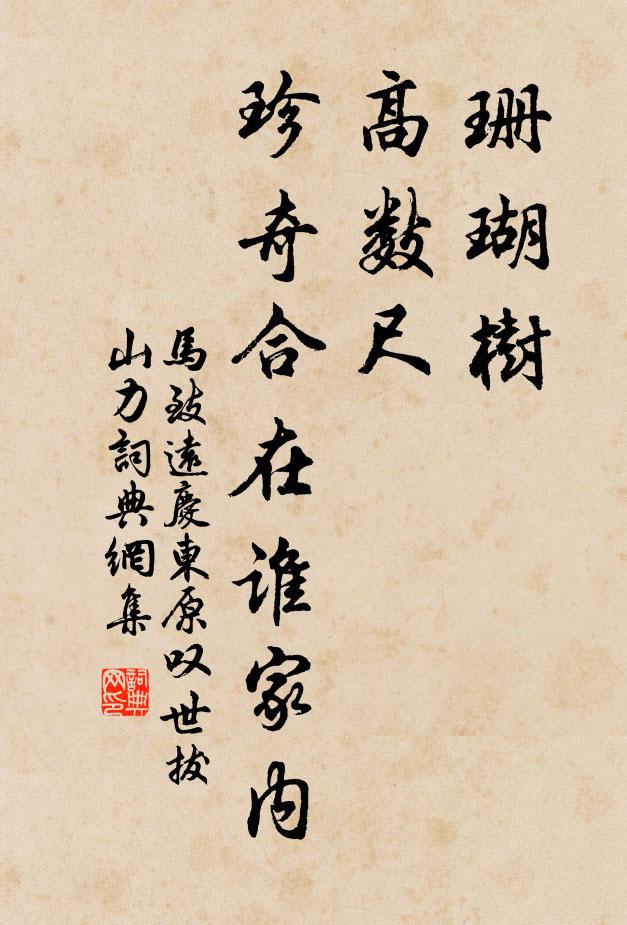 珊瑚樹
高數尺
珍奇合在誰家内
馬致遠慶東原叹世拔
山力詞典網集
詞典
网印